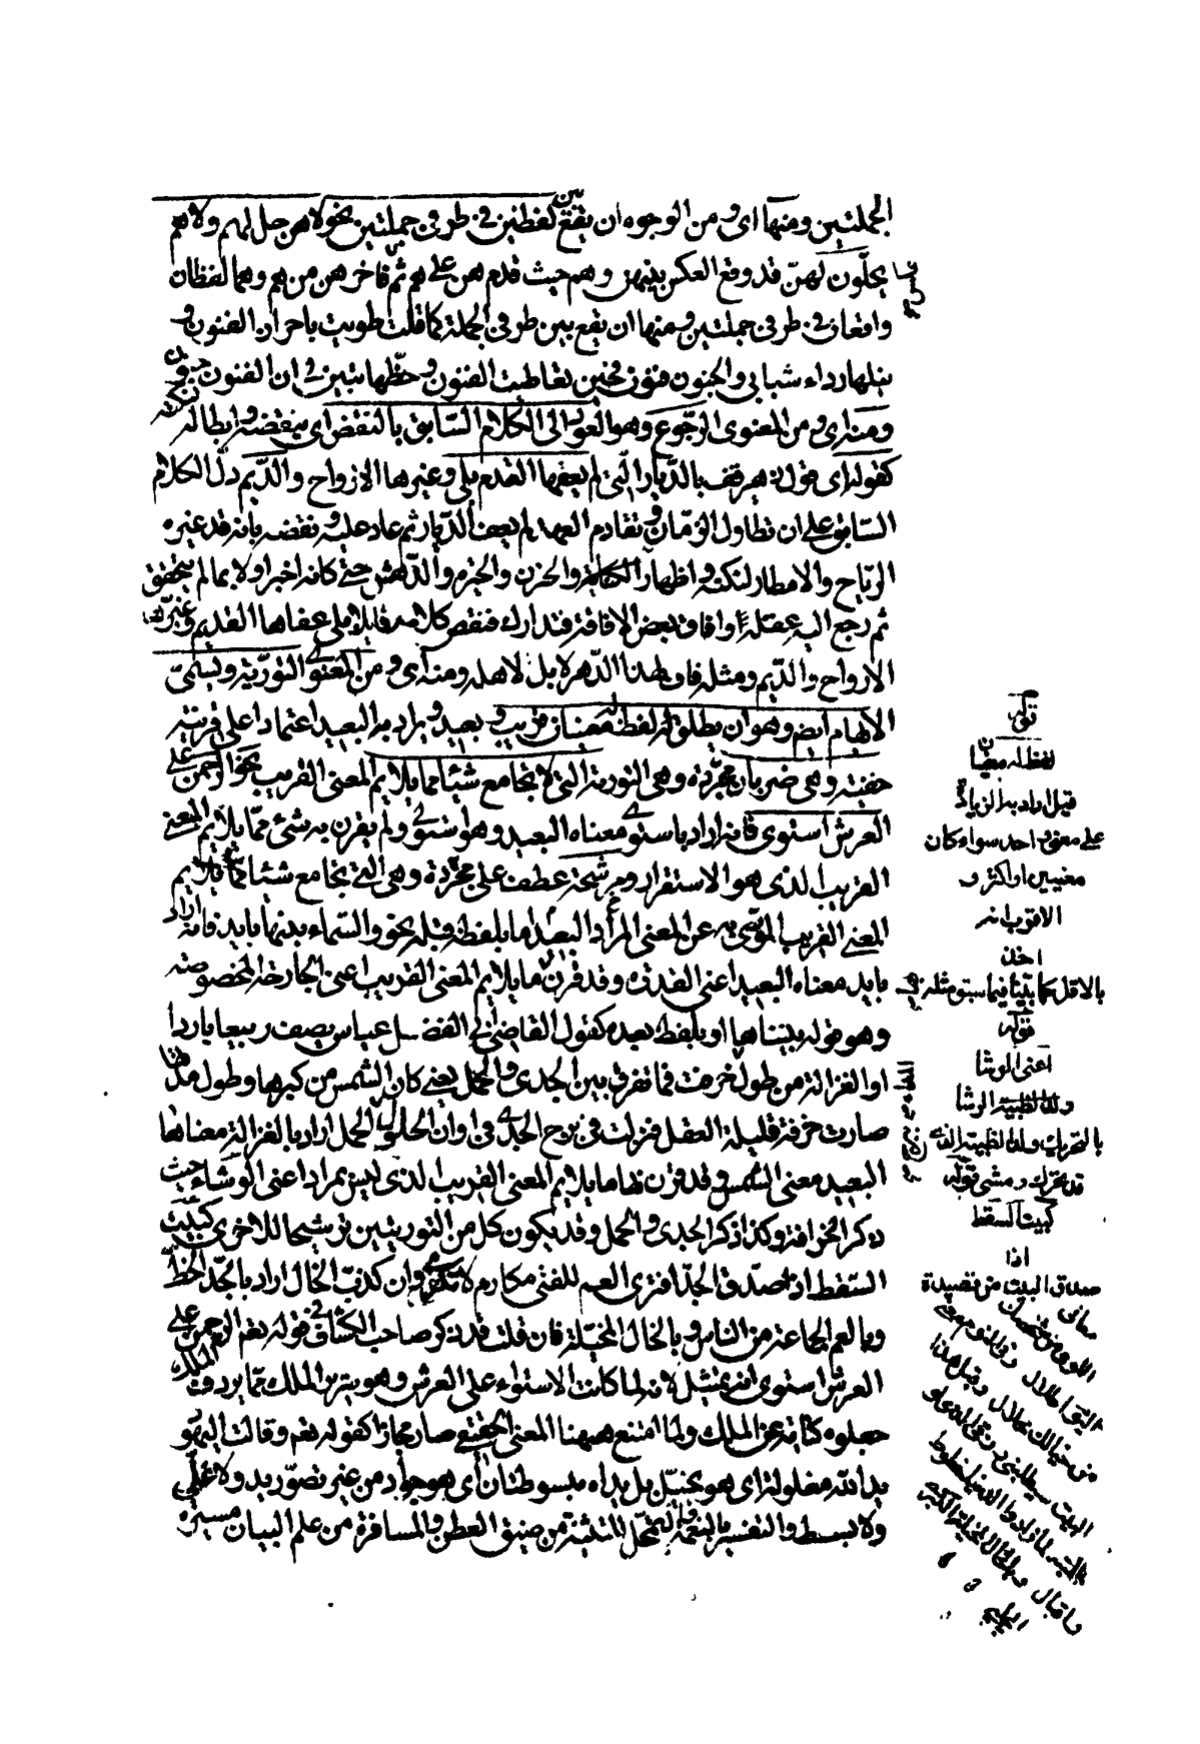 الجملتين ومنها اى ومن الوجوه ان يقع بين لفظين فى طرفى جملتين نحو لا هن حل لهم ولا هم
يحلون لهن قد وقع العكس بينهن وهم حيث قدم هن على هم ثم فاخر هن من هم وهما لفظان
واقعان فى طرفى جملتين ومنها ان يقع بين طرفى الجملة كما قلت طويت باحراز الفنون و
نيلها رداء شبابى والجنون فنون فحين تعاطيت الفنون وحظها تبين لى ان الفنون جنون
ومنه اى ومن المعنوى الرجوع وهو العود الى الكلام السابق بالنقض اى بنقضه وابطاله لنكتة
كقوله اى قول زهير قف بالديار التى لم يعفها القدم بلى وغيرها الارواح والديم دل الكلام
السابق على ان تطاول الزمان وتقادم العهد لم يعف الديار ثم عاد عليه ونقضه بانه قد غيره
الرياح والامطار لنكتة واظهار الكابة والحزن والحيرة والدهش حتى كانه اخبر اولا بما لم يتحقق
ثم رجع اليه عقله وافاق بعض الافاقة فتدارك فنقض كلامه قايلا بلى عفاها القديم وغيرها
الارواح والديم ومثله فاف لهذا الدهر لا بل لاهله ومنه اى ومن المعنوى التورية ويسمى
الايهام ايضا وهو ان يطلق لفظ له معنيان قريب وبعيد ويراد به البعيد اعتمادا على قرينة
خفية وهى ضربان مجردة وهى التورية التى لا تجامع شيئا مما يلايم المعنى القريب نحو الرحمن على
العرش استوى فانه اراد باستوى معناه البعيد وهو استولى ولم يقرن به شئ مما يلايم المعنى
القريب الذى هو الاستقرار ومرشحة عطف على مجردة وهى التى تجامع شيئا مما يلايم
المعنى القريب المورى به عن المعنى المراد البعيد اما بلفظ قبله نحو والسماء بنيناها بايد فانه اراد
بايد معناه البعيد اعنى القدرة وقد قرن بها ما يلايم المعنى القريب اعنى الجارحة المخصوصة
وهو قوله بنيناها او بلفظ بعده كقول القاضى ابى الفضل عياض يصف ربيعا باردا
او الغزالة من طول المدى خرفت فما تفرق بين الجدى والحمل يعنى كان الشمس من كبرها وطول مدتها
صارت خرفة قليلة العقل فنزلت فى برج الجدى فى اوان الحلول الحمل اراد بالغزالة معناها
البعيد معنى الشمس وقد قرن بها ما يلايم المعنى القريب الذى ليس بمراد اعنى الوشاء حيث
ذكر الخرافة وكذا ذكر الجدى والحمل وقد يكون كل من التوريتين ترشيحا للاخرى كبيت
السقط اذا صدق الجد افترى العم للفتى مكارم لا تكرى وان كذب الخال اراد بالجد الحظ
وبالعم الجماعة من الناس وبالخال المخيلة فان قلت قد ذكر صاحب الكشاف فى قوله تعم الرحمن على
العرش استوى انه تمثيل لانه لما كانت الاستواء على العرش وهو سرير الملك مما يردف الملك
جعلوه كناية عن الملك ولما امتنع ههنا المعنى الحقيقى صار مجازا كقوله تعم وقالت اليهود
يد الله مغلولة اى هو بخيل بل يداه مبسوطتان اى هو جواد من غير تصور يد ولا غل
ولا بسط والتفسير بالنعمة والتمحل للتثنية من ضيق العطن والمسافرة من علم البيان مسيرة
قوله
لفظ له معنيان
قيل اراد به الزيادة
على معنى واحد سواء كان
معنيين او اكثر و
الاقرب انه
اخذ
بالاقل كما
قوله
اعنى الوشا
ولد الظبية الوشا
بالتحريك ولد الظبية الذى
قد تحرك ومشى قوله
كبيت السقط
اذا
صدق البيت من قصيدة